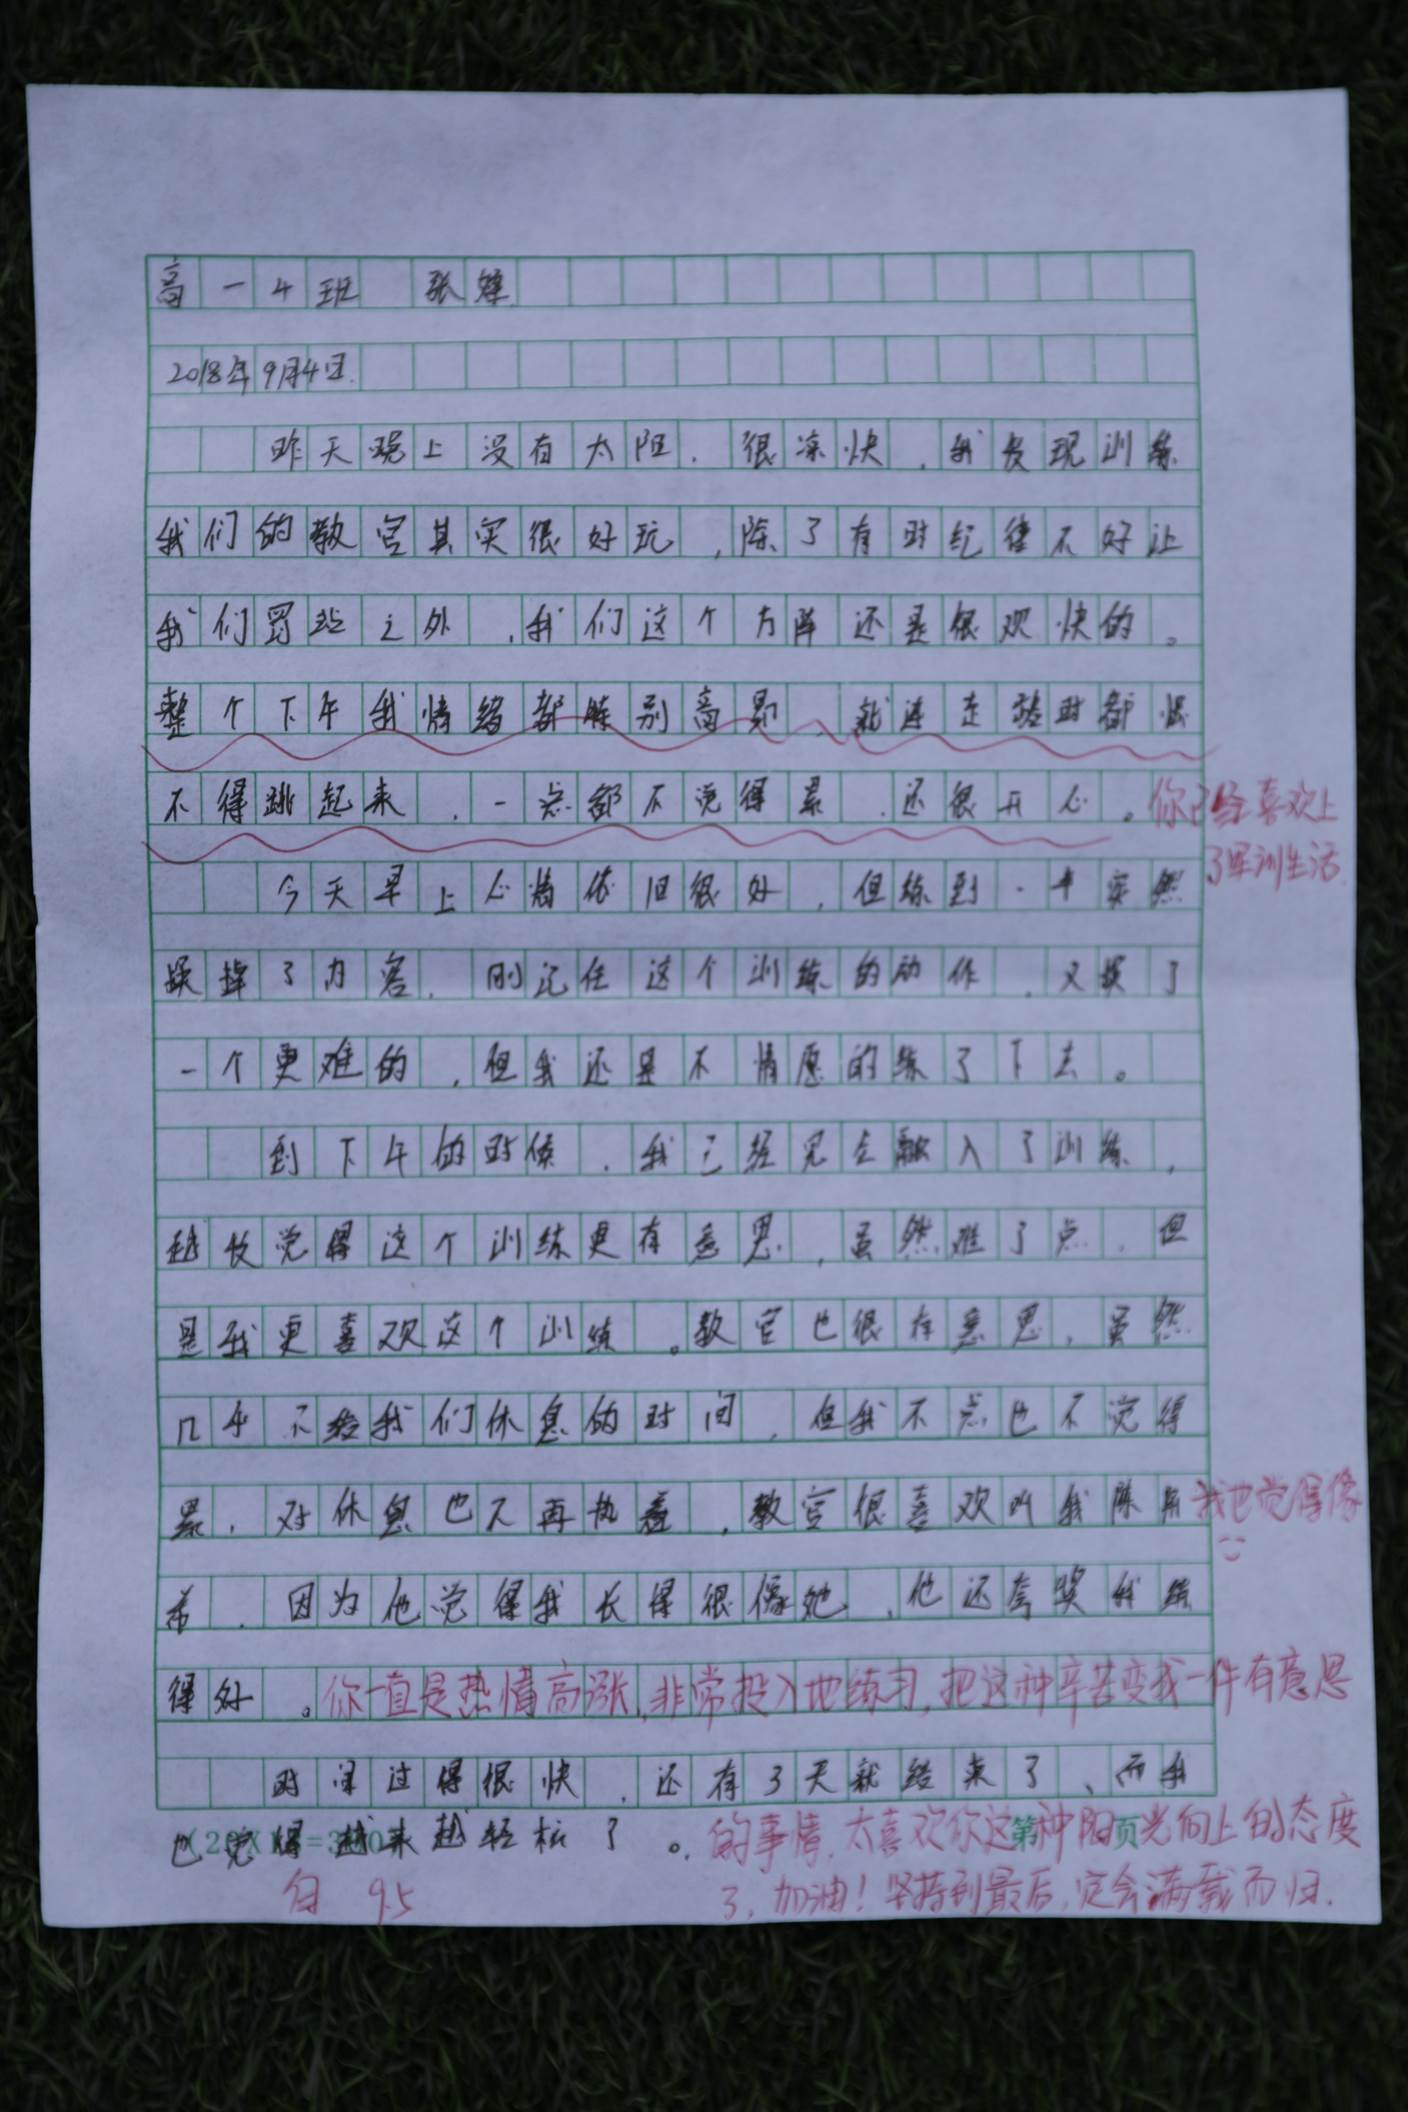 高一4班 张
2018年9月4日.
昨天晚上没有太阳，很凉快，我发现训练
我们的教官其实很好玩，除了有时纪律不好让
我们罚站之外，我们这个方阵还是很欢快的。
整个下午我情绪都特别高昂，就连走路时都恨
不得跳起来，一点都不觉得累，还很开心。你已经喜欢上
了军训生活
今天早上心情依旧很好，但练到一半突然
换掉了内容，刚记住这个训练的动作，又换了
一个更难的，但我还是不情愿的练了下去。
到下午的时候，我已经完全融入了训练，
越发觉得这个训练更有意思，虽然难了点，但
是我更喜欢这个训练。教官也很有意思，虽然
几乎不给我们休息的时间，但我不点也不觉得
累，对休息也不再执着，教官很喜欢叫我陈
我也觉得像
希，因为他觉得我长得很像她，他还夸奖我练
得好。
你一直是热情高涨，非常投入地练习，把这种辛苦变成一件有意思
时间过得很快，还有3天就结束了，而我
也觉得越来越轻松了。
的事情，太喜欢你这种阳光向上的态度
第 页
了，加油！坚持到最后，定会满载而归.
9.5